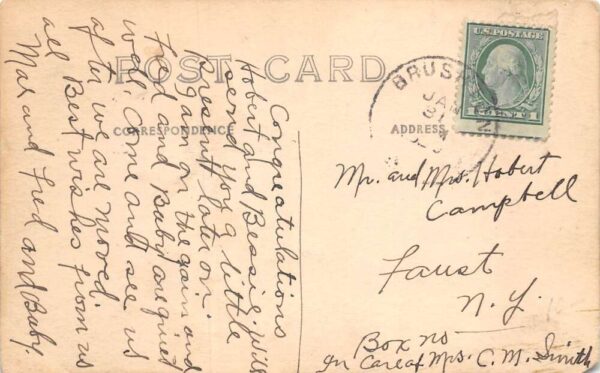 POST CARD
CORRESPONDENCE
ADDRESS
U.S. POSTAGE
JAN
31
Congratulations
Hobert and Bessie, will
send you a little
Present later on.
I am on the gain and
Fred and Baby are quite
well. Come and see us
after we are moved.
all Best wishes from us
Mae and Fred and Baby.
Mr. and Mrs. Hobert
Campbell
Faust
N.Y.
Box no
In Care of Mrs. C. M. Smith